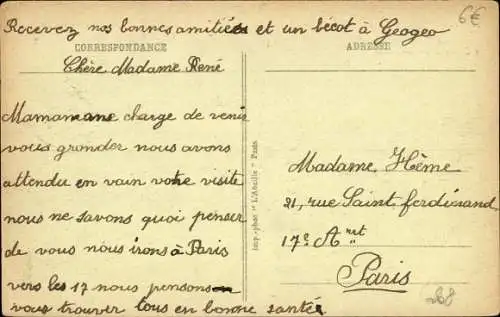 Recevez nos bonnes amitiées et un bécot à Geogeo
6€
CORRESPONDANCE
ADRESSE
Chère Madame René
Mamamane charge de venir
vous gronder nous avons
attendu en vain votre visite
nous ne savons quoi penser
de vous nous irons à Paris
vers les 17 nous pensons
vous trouver tous en bonne santé
Imp.-phot "L'Abeille" Paris
Madame Hême
21, rue Saint ferdinand
17e Arrt
Paris